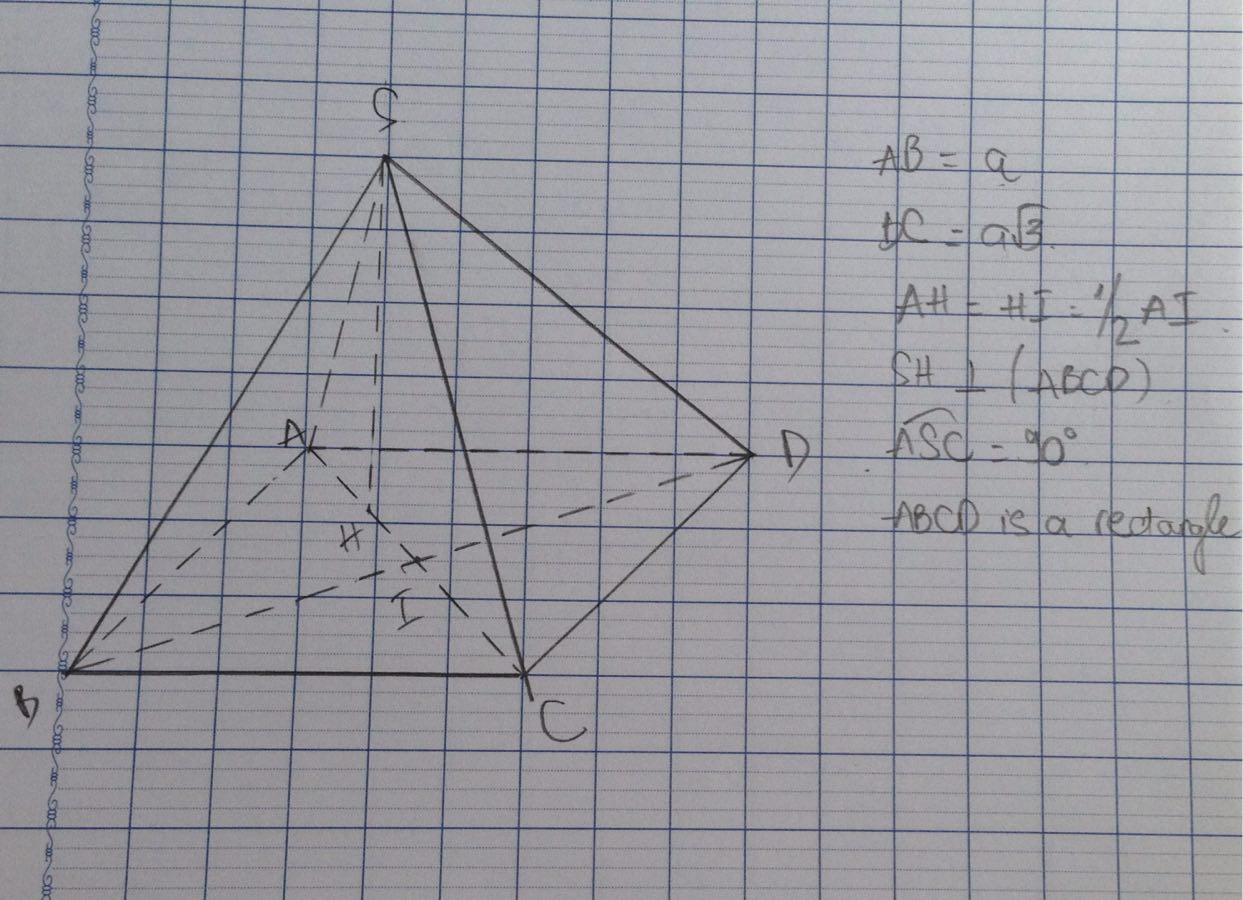 S
A
D
H
I
B
C
AB = a
BC = a√3.
AH = HI = 1/2 AI.
SH ⊥ (ABCD)
ASC = 90°
ABCD is a rectangle